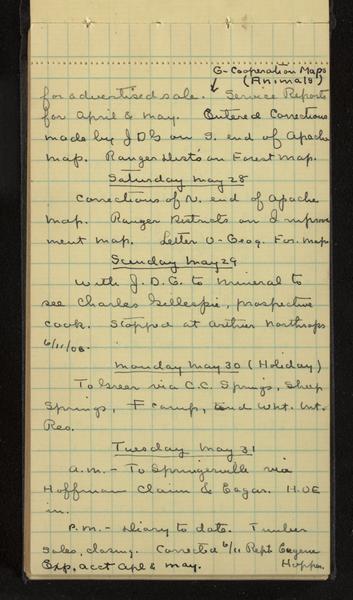 G-Cooperation Maps
(Animals)
for advertised sale. Service Reports
for April & May. Entered Corrections
made by JDG on S. end of Apache
map. Ranger Dists on Forest map.
Saturday May 28
Corrections of N. end of Apache
map. Ranger Districts on Improve
ment map. Letter O-Geog. For. Maps
Sunday May 29
With J.D.G. to Mineral to
see Charles Gillespie, prospective
cook. Stopped at Arthur Northrops
6/11/08.
Monday May 30 (Holiday)
To Greer via C.C. Springs, Sheep
Springs, F camp, and Wht. Mt.
Res.
Tuesday May 31
a.m. - To Springerville via
Hoffman Claim & Eagar. H.O.E
in.
P.M. - Diary to date. Timber
sales, closing. Corrected 6/11 Rept Eugene
Exp. acct Apl & May. Hopper